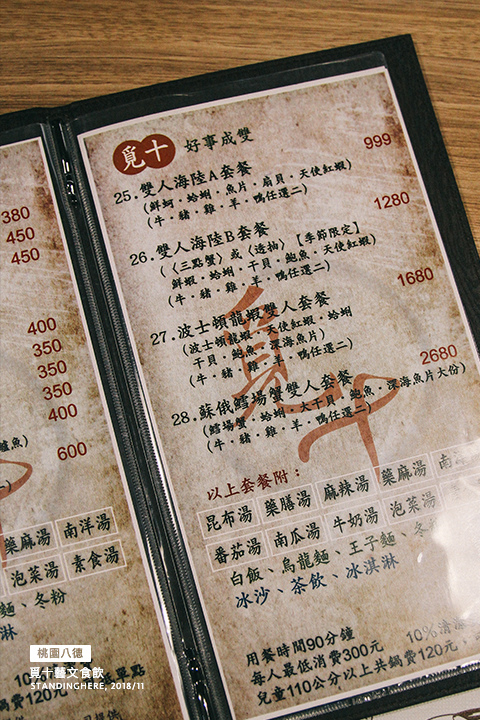 380
450
450
400
350
350
350
400
600
藥麻湯 南洋湯
泡菜湯 素食湯
麵、冬粉
淋
覓十 好事成雙
25.雙人海陸A套餐 999
(鮮蚵・蛤蜊・魚片・扇貝・天使紅蝦)
(牛・豬・雞・羊・鴨任選二)
26.雙人海陸B套餐 1280
(〈三點蟹〉或〈透抽〉【季節限定】
鮮蝦・蛤蜊・干貝・鮑魚・天使紅蝦)
(牛・豬・雞・羊・鴨任選二)
27.波士頓龍蝦雙人套餐 1680
(波士頓龍蝦・天使紅蝦・蛤蜊
干貝・鮑魚・深海魚片)
(牛・豬・雞・羊・鴨任選二)
28.蘇俄鱈場蟹雙人套餐 2680
(鱈場蟹・蛤蜊・大干貝・鮑魚・深海魚片大份)
(牛・豬・雞・羊・鴨任選二)
以上套餐附：
昆布湯 藥膳湯 麻辣湯 藥麻湯
番茄湯 南瓜湯 牛奶湯 泡菜湯
白飯、烏龍麵、王子麵、冬
冰沙、茶飲、冰淇淋
用餐時間90分鐘 10%清潔
每人最低消費300元
兒童110公分以上共鍋費120元
桃園八德
覓十藝文食飲
STANDINGHERE, 2018/11